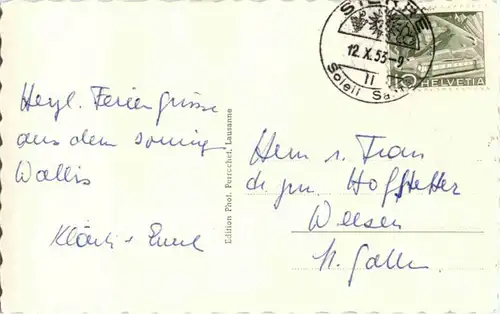 SIERRE
12.X.53-9
11
Soleil Sa
10 HELVETIA
Herzl. Feriengrüsse
aus dem sonnig
Wallis
Klärli + Emil
Edition Phot. Perrochet, Lausanne
Herrn u. Frau
dr. jur. Hofstetter
Weesen
St. Gallen